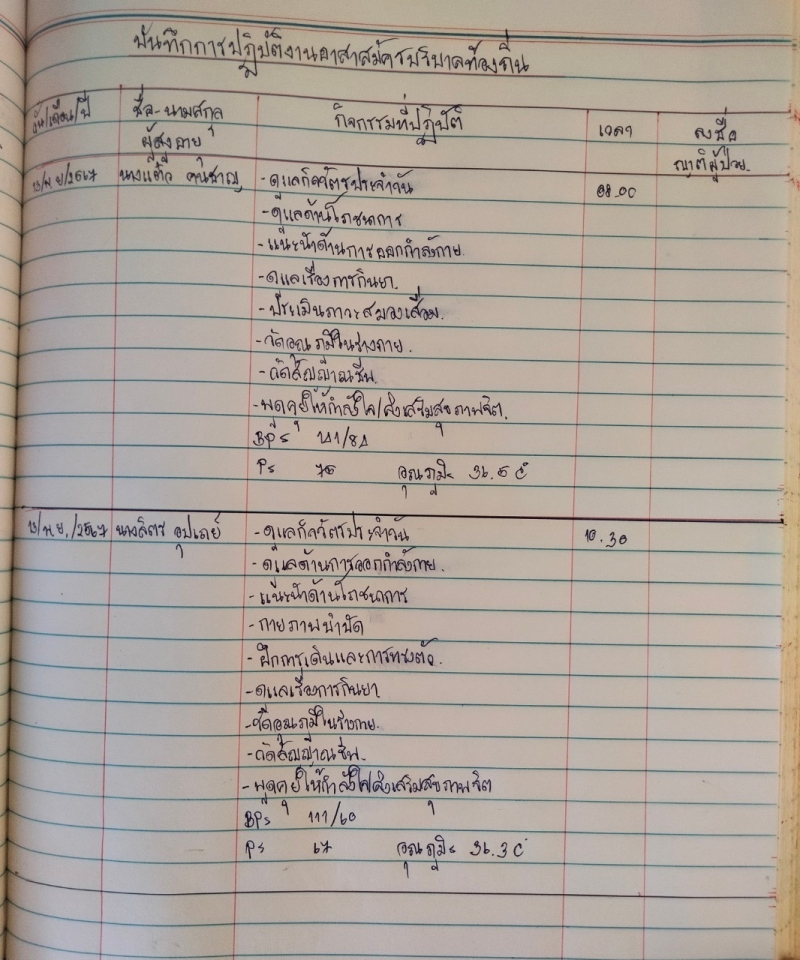 บันทึกการปฏิบัติงานอาสาสมัครบริบาลท้องถิ่น
วัน/เดือน/ปี ชื่อ-นามสกุล กิจกรรมที่ปฏิบัติ เวลา ลงชื่อ
ผู้สูงอายุ ญาติผู้ป่วย.
13/พ.ย/2567 นางแต๋ว - ดูแลกิจวัตรประจำวัน 08.00
- ดูแลด้านโภชนาการ
- แนะนำด้านการออกกำลังกาย
- ดูแลเรื่องการกินยา.
- ประเมินภาวะสมองเสื่อม.
- วัดอุณภูมิในร่างกาย.
- วัดสัญญาณชีพ.
- พูดคุยให้กำลังใจ/ส่งเสริมสุขภาพจิต.
BP= 141/81
P= 76 อุณภูมิ= 36.5 C
13/พ.ย./2567 - ดูแลกิจวัตรประจำวัน 10.30
- ดูแลด้านการออกกำลังกาย.
- แนะนำด้านโภชนาการ
- กายภาพบำบัด
- ฝึกการเดินและการทรงตัว.
- ดูแลเรื่องการกินยา
- วัดอุณภูมิในร่างกาย.
- วัดสัญญาณชีพ.
- พูดคุยให้กำลังใจ/ส่งเสริมสุขภาพจิต
BP= 111/60
P= 67 อุณภูมิ= 36.3 C